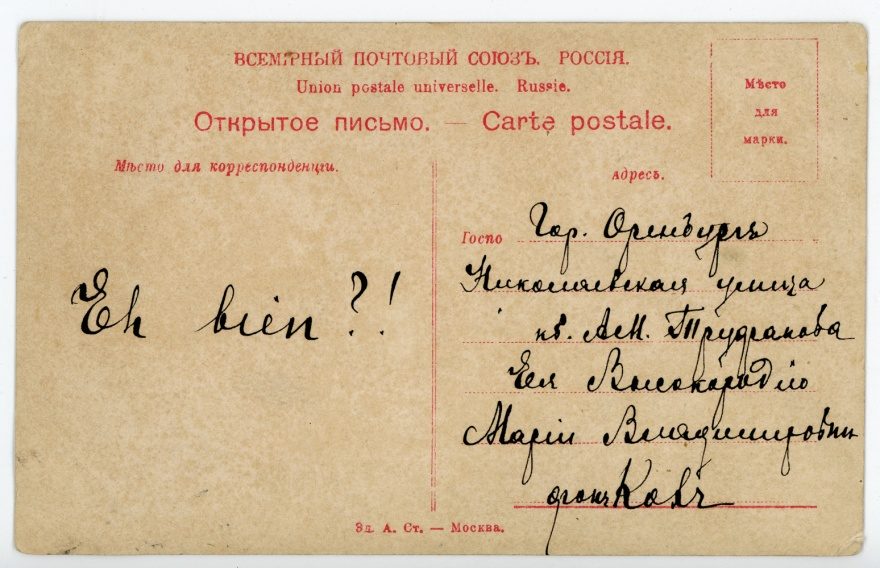 ВСЕМІРНЫЙ ПОЧТОВЫЙ СОЮЗЪ. РОССІЯ.
Union postale universelle. Russie.
Открытое письмо. — Carte postale.
Мѣсто
для
марки.
Мѣсто для корреспонденціи.
Адресъ.
Eh bien?!
Госпо Гор. Оренбургъ
Николаевская улица
кв. А.М. Труфанова
Ея Высокородію
Маріи Владиміровнѣ
фонъ
Зд. А. Ст. — Москва.